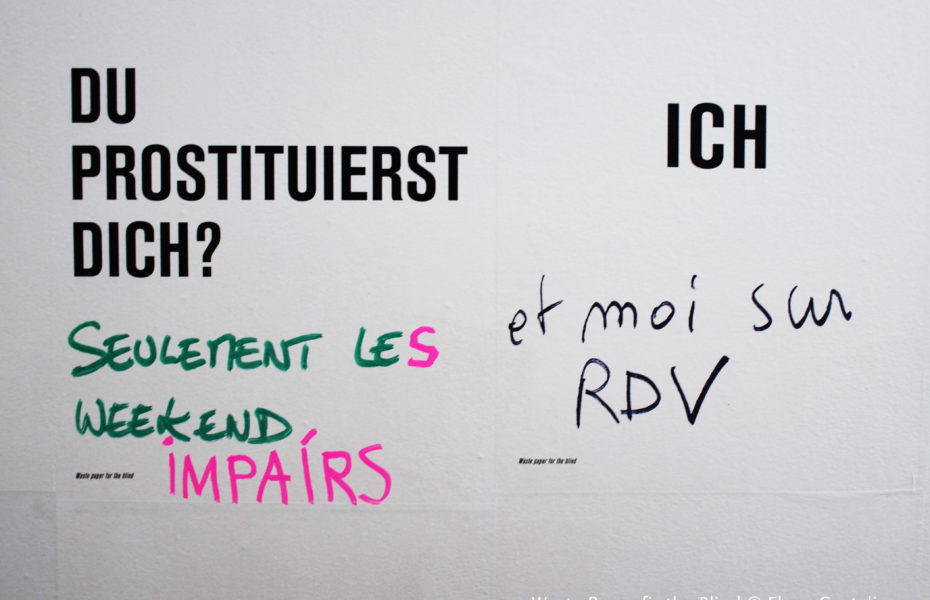 DU
PROSTITUIERST
DICH?
SEULEMENT LES
WEEKEND
IMPAIRS
Waste paper for the blind
ICH
et moi sur
RDV
Waste paper for the blind